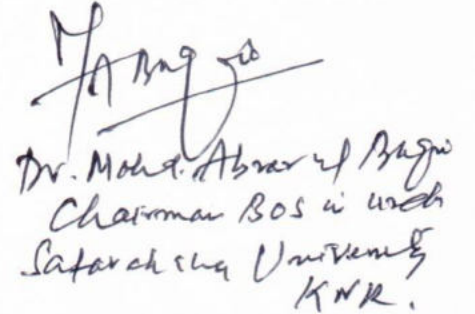 MA Baqui
Dr. Mohd. Abrar ul Baqui
Chairman BOS in Urdu
Satavahana University
KNR.